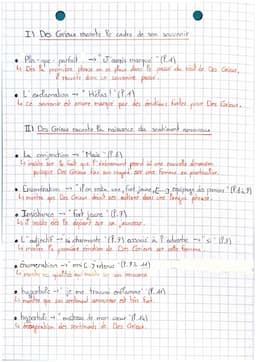 I) Des Grieux raconte le cadre de son souvenir
• Plus-que-parfait → "J'avais marqué" (l.1)
↳ Dès la première phrase on se place dans le passé du récit de Des Grieux,
il raconte donc un souvenir passé.
• L'exclamation → "Hélas!" (l.1)
↳ Ce souvenir est encore marqué par des émotions fortes pour Des Grieux.
II) Des Grieux raconte la naissance du sentiment amoureux
• La conjonction → "Mais" (l. )
↳ insiste sur le fait que l'évènement prend une nouvelle dimension
puisque Des Grieux fixe son regard sur une femme en particulier.
• Enumération → "Il en resta une, fort jeune, [...] équipage des paniers" (l.6, )
↳ montre que Des Grieux décrit ses actions dans une longue phrase.
• Insistance → "fort jeune" (l.7)
↳ Il insiste dès le départ sur sa jeunesse.
• L'adjectif → "si charmante" (l.9) associé à l'adverbe → "si" (l.9)
↳ la première émotion de Des Grieux sur cette femme.
• énumération → "moi [...] retenue" (l.9 à 11)
↳ montre les qualités son innocence
• hyperbole → "je me trouvai enflammé" (l.11)
↳ montre que son sentiment amoureux est très fort.
• hyperbole → "maîtresse de mon cœur" (l.14)
↳ exagération des sentiments de Des Grieux.